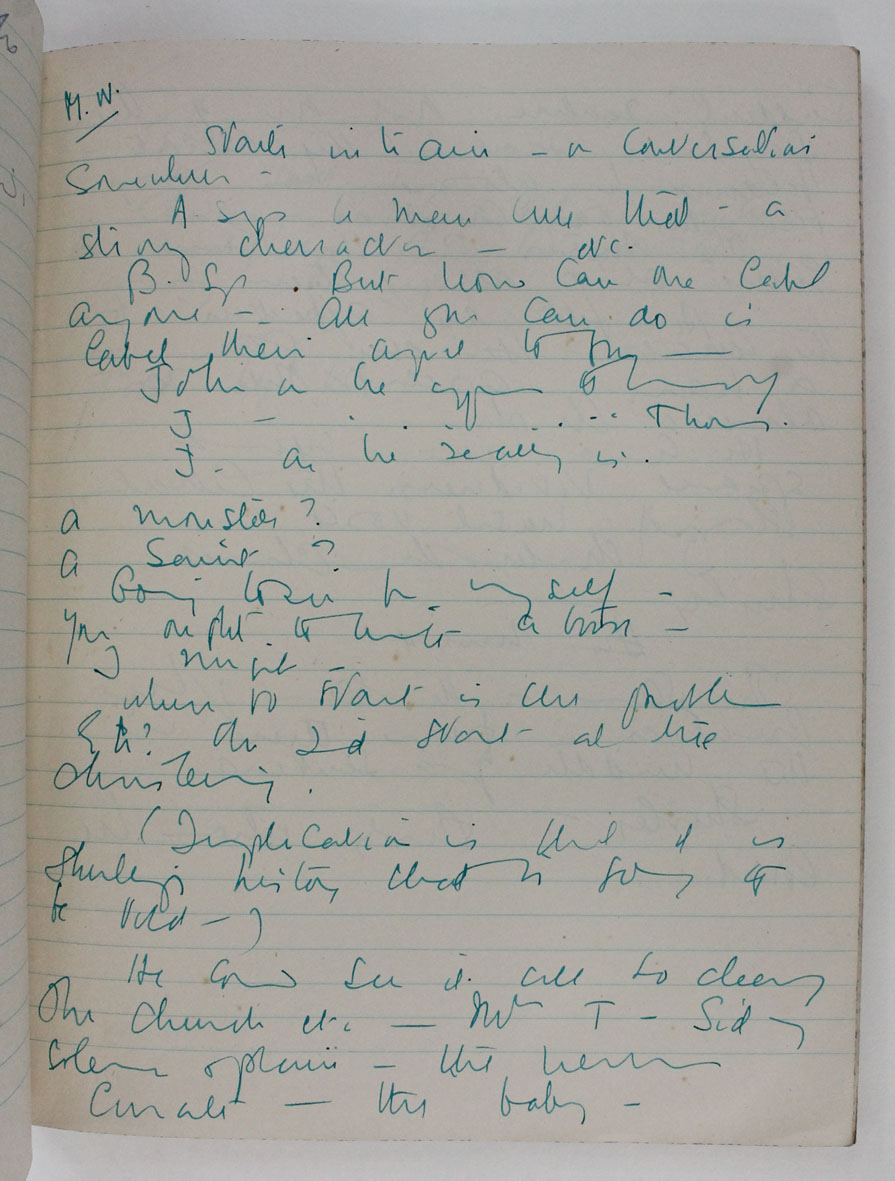 M. W.
Starts in train - a conversation
Somewhere -
A says a man like that - a
strong character - etc.
B. says . But how can one label
anyone - . All you can do is
label their aspect to
John as he appears to
J - . . . . .. Thomas.
J. as he really is.
a monster?
a Saint?
Going to be myself -
You ought to write a book -
I might -
where to start is the problem
Eh? Oh I'd start at the
christening.
(Implication is that it is
Shirley's history that is going to
be told - )
He could see it all so clearly
The Church etc. - Mrs T - Sid
solemn & plain - the
Curate - the baby -